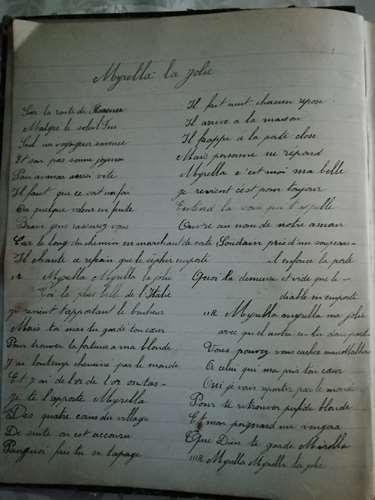 Myrella la jolie
Sur la route de
Malgré le soleil
Seul un voyageur
Et son pas sonne joyeux
Pour marcher aussi vite
Il faut que ce soit un fou
Ou quelque voleur en fuite
Braves gens rassurez vous
Car le long du chemin en marchant de
Il chante ce refrain que le répète
Myrella Myrella la jolie
Toi la plus belle de l'Italie
je revient t'apportant le bonheur
Mais toi mas tu gardé ton cœur
Pour trouver la fortune a ma blonde
J'ai longtemps cheminé par le monde
Et j'ai de l'or de l'or en tas
Je te l'apporte Myrella
Des quatre coins du village
De suite on est accouru
Pourquoi fais tu se tapage
Il fait nuit chacun repose
Il arrive a la maison
Il frappe a la porte close
Mais personne ne répond
Myrella c'est moi ma belle
je revient c'est pour toujour
Entend la voix qui t'appelle
Ouvre au nom de notre amour
Soudain pris d'un soupçon
il enfonce la porte
Quoi la demeure est vide que le
diable m'emporte
Myrella Myrella ma jolie
avec quel autre es tu donc partie
Vous pouvez vous cacher
A celui qui ma pris ton cœur
Oui je vais repartir par le monde
Pour te retrouver blonde
Et mon poignard me vengera
Que Dieu te garde Mirella
Myrella Myrella la jolie